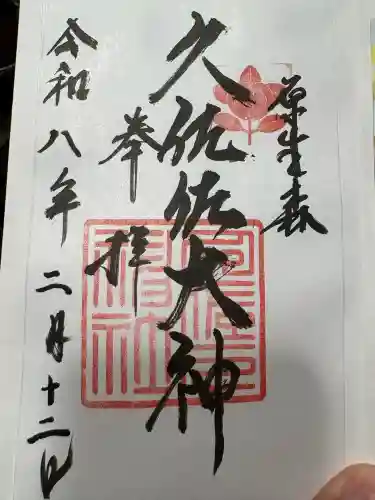 原生森
久佐佐大神
奉拝
令和八年二月十二日